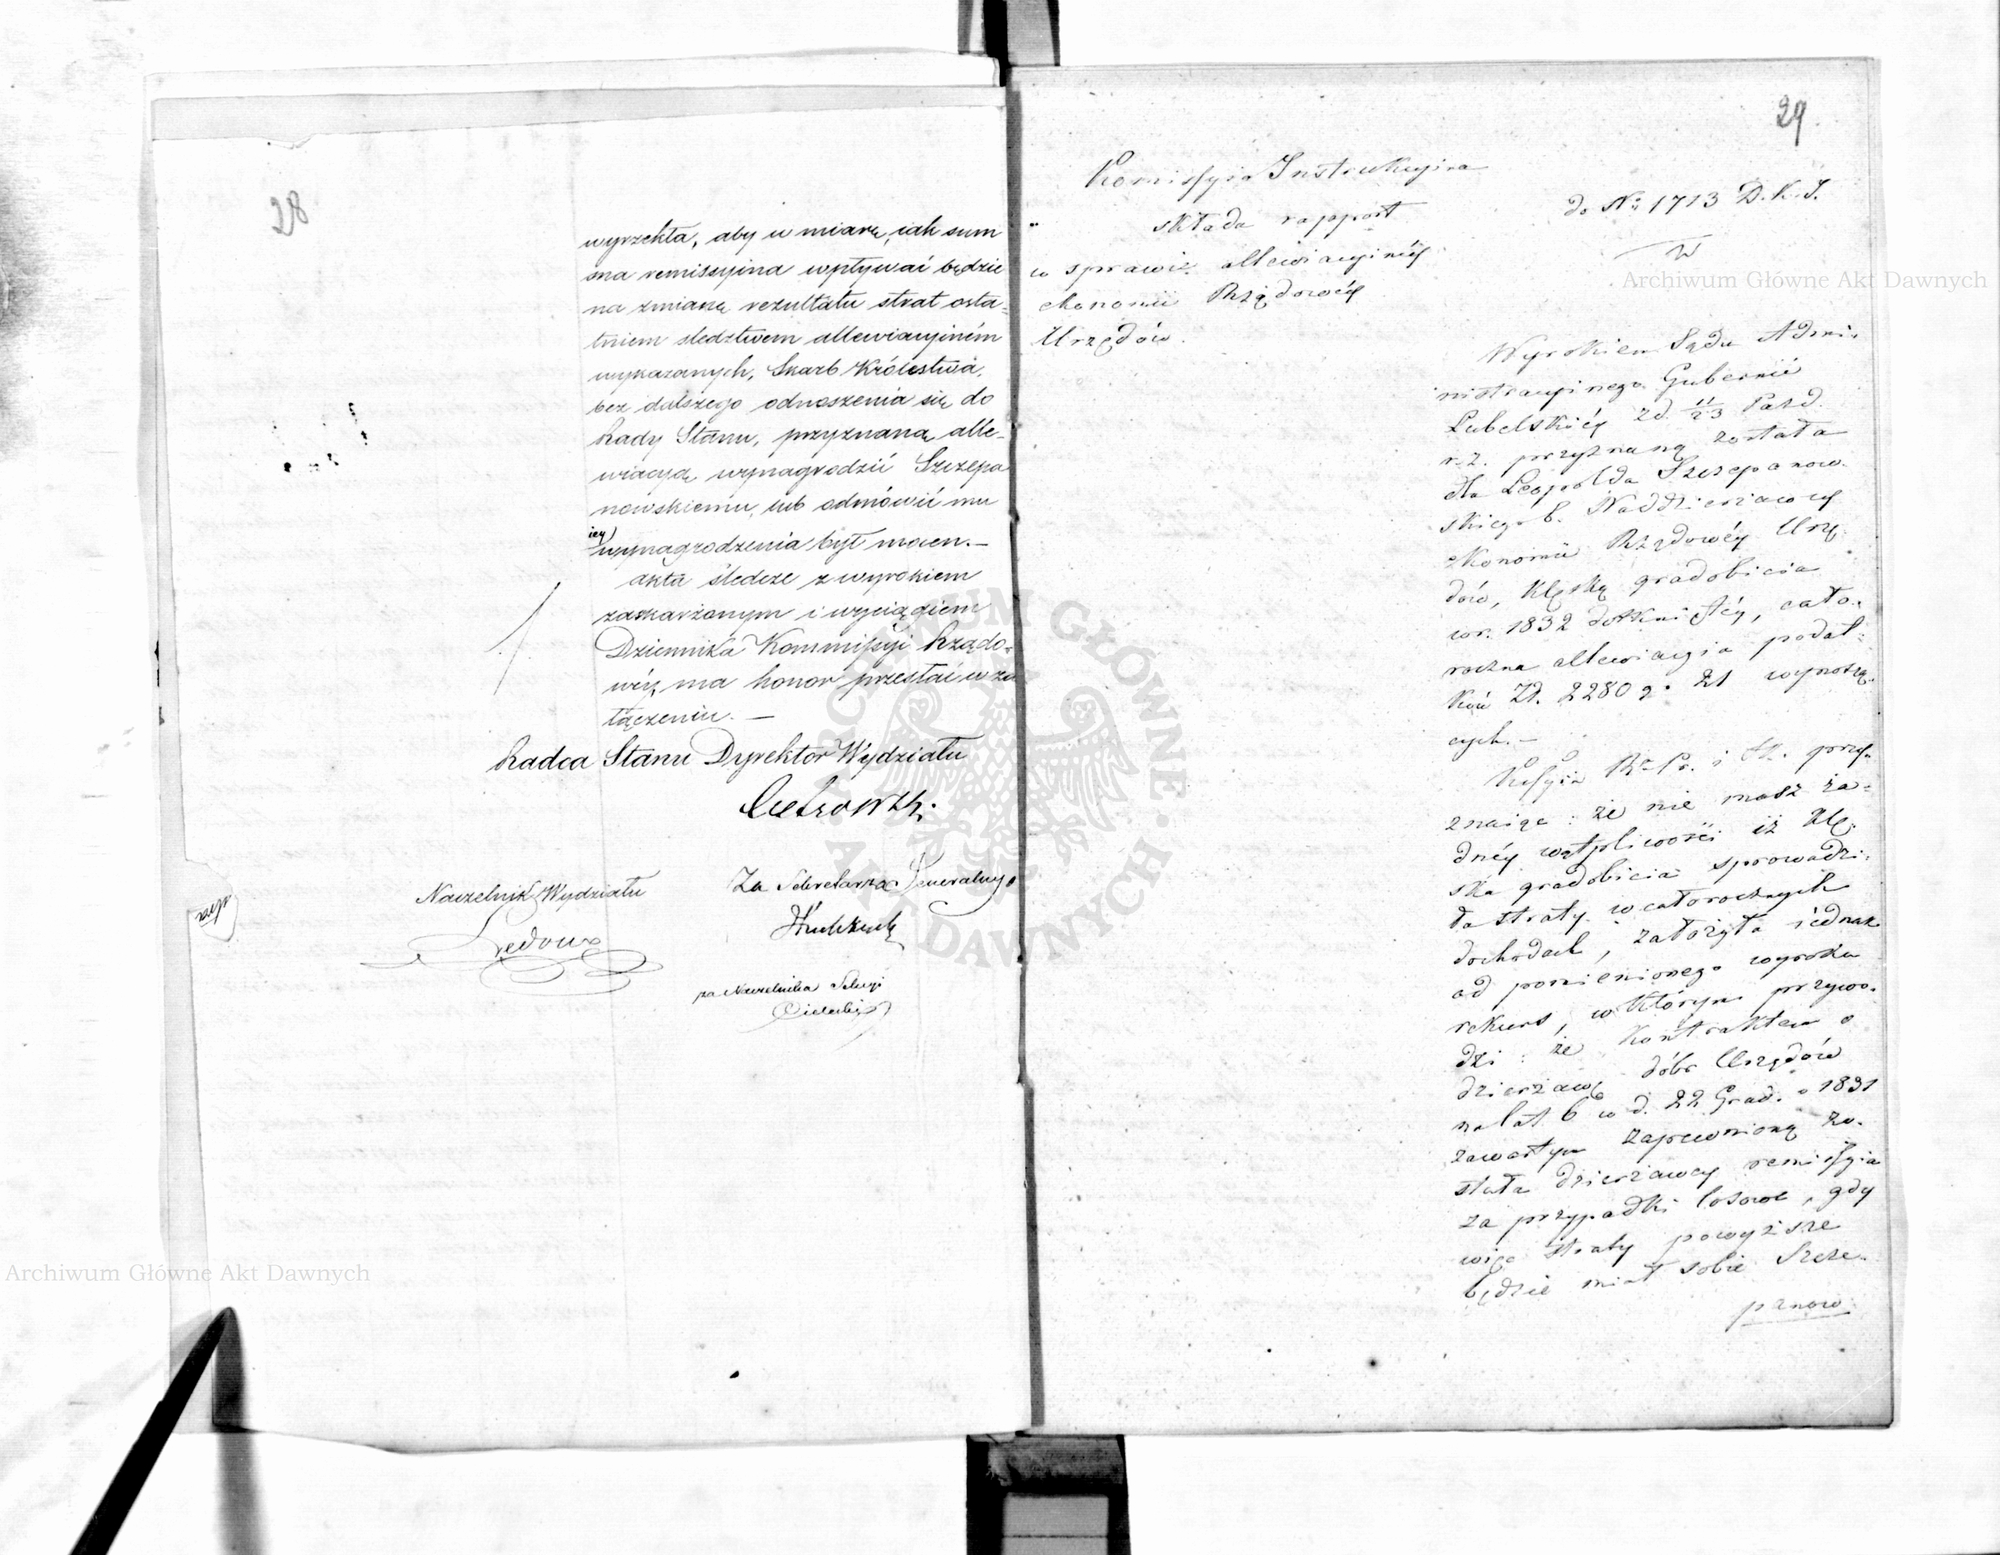 28
wyrzekła, aby w miarę, iak sum
ma remissyina wpływać będzie
na zmianę rezultatu strat osta-
tniem śledztwem allewiacyiném
wykazanych, Skarb Królestwa,
bez dalszego odnoszenia się do
Rady Stanu, przyznaną alle-
wiacyą wynagrodzić Szczepa
nowskiemu, lub odmówić mu
iey
wynagrodzenia był mocen. —
akta śledcze z wyrokiem
zaskarżonym i wyciągiem
Dziennika Kommissyi Rządo-
wéy, ma honor przesłać w za
łączeniu. —
Radca Stanu Dyrektor Wydziału
Naczelnik Wydziału
Ledoux
Za Sekretarza Generalnego
za Naczelnika Sekcyi
29
Komissyia Instrukcyina
składa rapport
w sprawie allewiacyinéy
ekonomii Rządowéy
Urzędów.
do No 1713 D.K.I.
W
Archiwum Główne Akt Dawnych
Wyrokiem Sądu Admi-
nistracyinego Gubernii
Lubelskiéy z d. 11/23 Paźd.
r. z. przyznaną została
dla Leopolda Szczepanow-
skiego b. Naddzierżawcy
ekonomii Rządowéy Urzę-
dów, klęską gradobicia
w r. 1832 dotkniętéy, cało-
roczna allewiacyia podat-
ków Zł. 2280 g. 21 wynoszą-
cych. —
Kssyia Rz. Pr. i Sk. przy-
znaiąc: że nie masz ża-
dnéy wątpliwości iż klę-
ska gradobicia sprowadzi-
ła straty w całorocznych
dochodach, założyła iednak
od pomienionego wyroku
rekurs, w którym przywo-
dzi: że kontraktem o
dzierżawę dóbr Urzędów
na lat 6 w d. 22 Grud. 1831
zawartym zapewnioną zo-
stała dzierżawcy remissyia
za przypadki losowe, gdy
więc straty powyższe
będzie miał sobie Szcze-
panow
Archiwum Główne Akt Dawnych
ARCHIWUM GŁÓWNE AKT DAWNYCH